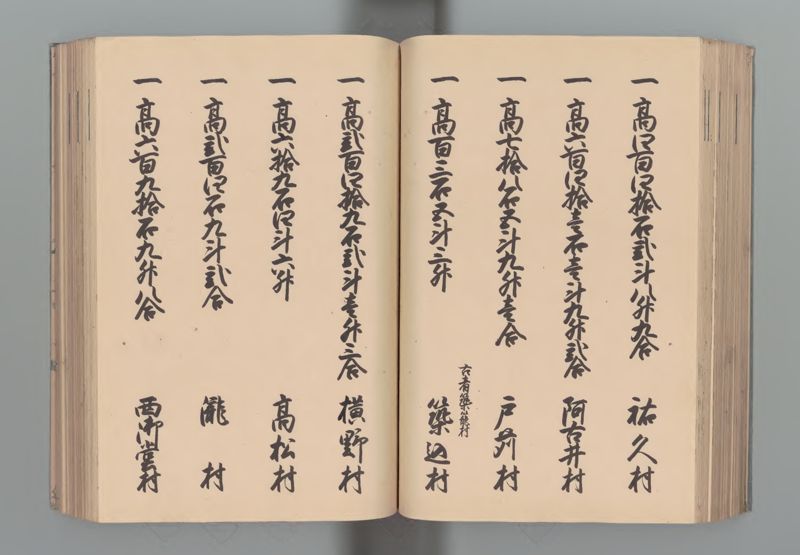 一 高四百四拾石弐斗八升九合 祐久村
一 高六百四拾壱石壱斗九升弐合 阿古井村
一 高七拾八石五斗九升壱合 戸苅村
一 高百三石五斗三升 築込村
古者築籠村
一 高弐百四拾九石弐斗壱升三合 横野村
一 高六拾九石四斗六升 高松村
一 高弐百四石九斗弐合 瀧村
一 高六百九拾石九升八合 西御堂村